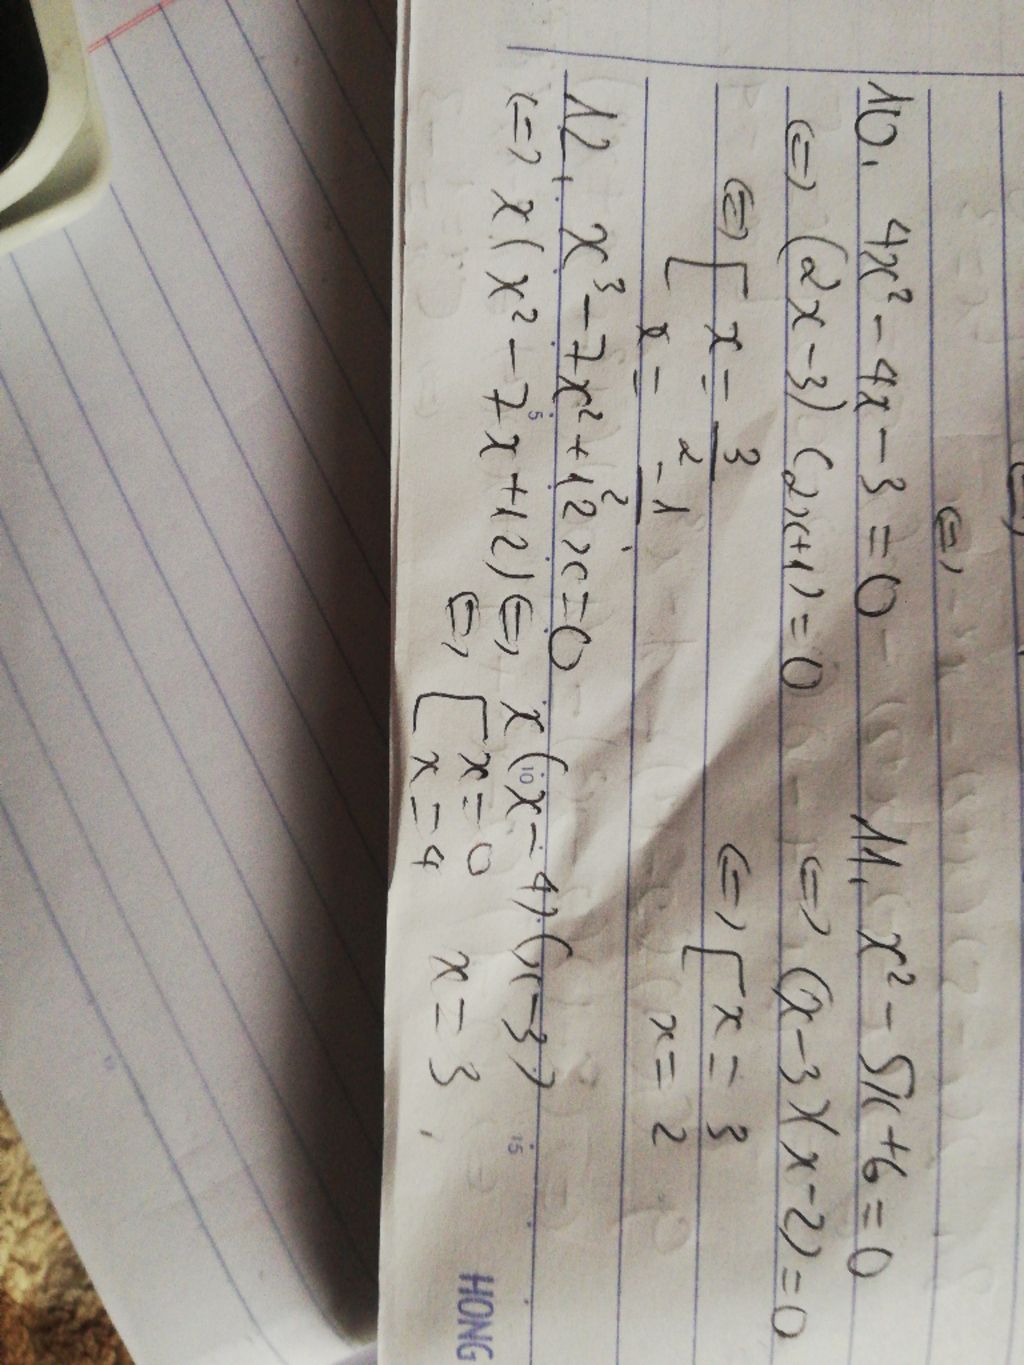 10, 4x² - 4x - 3 = 0
<=> (2x - 3) (2x + 1) = 0
<=> [ x = 3/2
x = -1/2
11, x² - 5x + 6 = 0
<=> (x - 3)(x - 2) = 0
<=> [ x = 3
x = 2
12, x³ - 7x² + 12x = 0
<=> x (x² - 7x + 12) <=> x (x - 4) (x - 3)
<=> [ x = 0
x = 4 x = 3
5 10 15
HONG